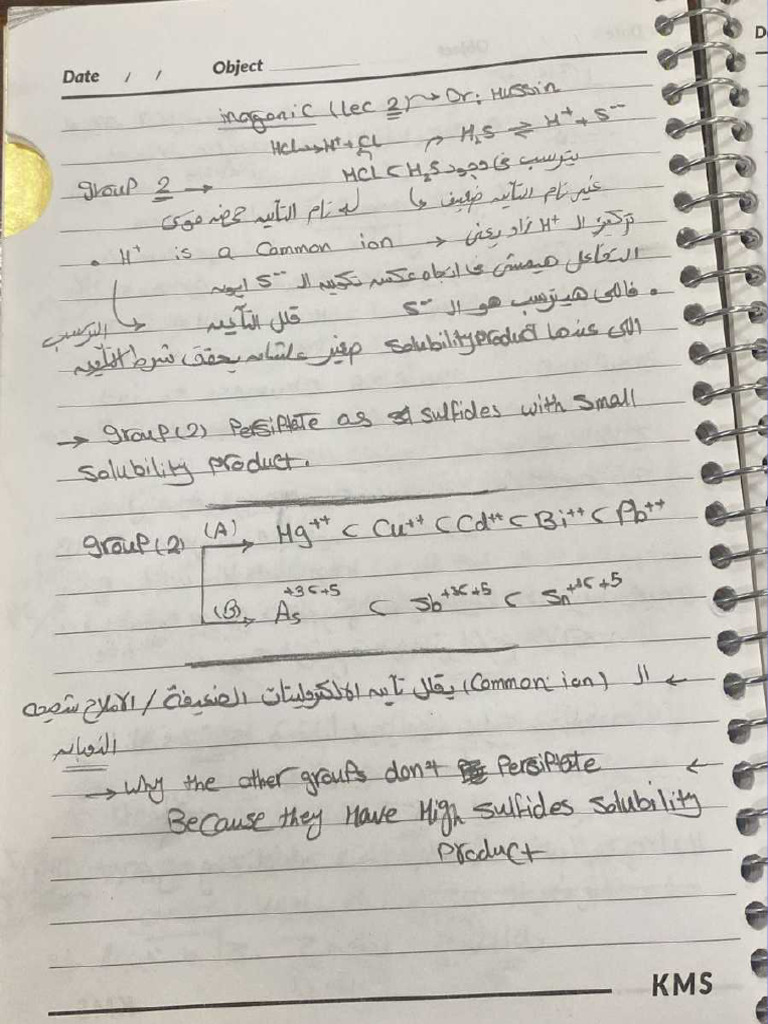 Date / / Object
inorganic (lec 2) → Dr: Hussin
HCl → H⁺ + Cl → H₂S ⇌ H⁺ + S⁻⁻
group 2 → يترسب فى وجود HCl < H₂S
غير تام التأين ضعيف له تام التأين حمض قوى
• H⁺ is a Common ion → تركيز الـ H⁺ زاد يعنى
التفاعل هيمشى فى اتجاه عكس تكوين الـ S⁻⁻ ايون
• فاللى هيترسب هو الـ S⁻⁻ قلل التأين الترسب
اللى عندها Solubility product صغير علشان يحقق شرط
→ group(2) Persiptate as sulfides with small
solubility product.
group(2) (A) Hg⁺⁺ < Cu⁺⁺ < Cd⁺⁺ < Bi⁺⁺ < Pb⁺⁺
(B) As⁺³ ⁺⁵ < Sb⁺³ ⁺⁵ < Sn ⁺⁵
← الـ (Common ion) يقلل تأين الالكتروليتات الضعيفة / الاملاح شحيحه
الذوبان
→ Why the other groups don't Persiptate ←
Because they Have High sulfides Solubility
Product
KMS